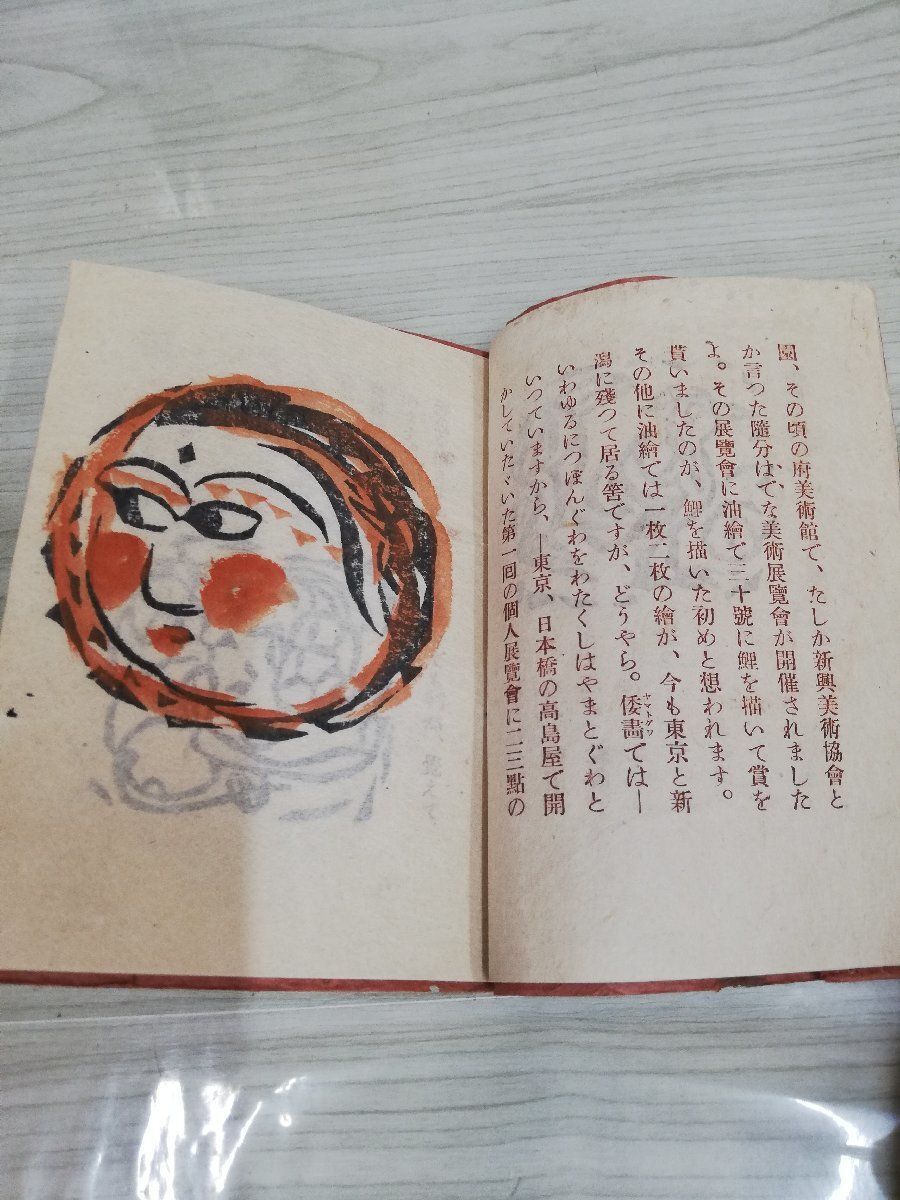 園、その頃の府美術館で、たしか新興美術協會と
か言つた隨分はでな美術展覽會が開催されました
よ。その展覽會に油繪で三十號に鯉を描いて賞を
貰いましたのが、鯉を描いた初めと想われます。
その他に油繪では一枚二枚の繪が、今も東京と新
潟に殘つて居る筈ですが、どうやら。倭畵ヤマトグワでは—
いわゆるにつぽんぐわをわたくしはやまとぐわと
いつていますから、—東京、日本橋の高島屋で開
かしていたゞいた第一囘の個人展覽會に二三點の